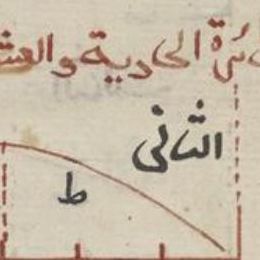 ئرة الحادية والعشـ
الثانى
ط